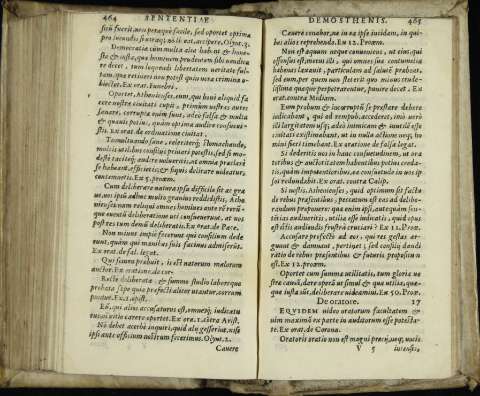 464 SENTENTIAE
sicū fuerit, neu petatque facile, sed oportet optima
pro iucundis si utraque nō licet, accipere. Olynt. 3.
Democratia cùm multa alia habent & hone-
sta & iusta, quae hominem prudentem sibi uendica
re decet, tum loquendi libertatem ueritate sul-
tam, quae
obiecta. Ex orat. Funebri.
Oportet, Athenienses, eum, qui boni aliquid fa
cere uestrae ciuitati cupit, primum uestras aures
sanare, corruptae enim sunt, adeo falsa & multa
& quauis potius, quàm optima audire consueui-
stis. Ex orat. de ordinatione ciuitat.
Tumultuando sane, celeriterque stomachando,
multis utilibus consilijs priuari potestis, sed si mo-
destè taciteque audire uolueritis, ad omnia praeclarè
se habeant, efficietis, & siquis delirare uideatur,
contemnetis. Ex 5. proœm.
Cum deliberare natura ipsa difficile sit ac gra
ue, uos ipsū adhuc multo grauius reddidistis, Athe
nienses, nam reliqui omnes homines ante rē eorū-
que euentū deliberatione uti consueuerunt, at uos
post res tum demū deliberatis. Ex orat. de Pace.
Non minus impij fecerunt qui consilium dede
runt, quàm qui manibus suis facinus admiserūt.
Ex orat. de fal. legat.
Qui semen prabuit, is est natorum malorum
auctor. Ex oratione, de cor.
Recte deliberata & summo studio laborque
probata saepe quia praefecti aliter utantur, corrum
puntur. Ex. 2. epist.
Eū, qui alios accusaturus est, omnesque iudicatu
rus, uitio carere oportet. Ex ora. 1. cōtra Arist.
Nō debet acerbè inquiri, quid alij gesserint, nisi
ipsi ante officium nostrum fecerimus. Olynt. 2.
Cauere
DEMOSTHENIS. 465
Cauere conabor, ne in ea ipse incidam, in qui-
bus alios reprehendo. Ex 12. Proœm.
Non est aequum neque conueniens, ut eius, qui
offensus est, metui illi, qui omnes sine contumelia
habeas laxauit, particulam ad salutē praebeat,
sed eum, per quem non steterit quo minus crude-
lissima quaeque perpetraretur, punire decet. Ex
orat. contra Midiam.
Eum probum & incorruptū se praestare debere
iudicabant, qui ad rempub. accederet, imò uerò
illi largitatem usque adeò inimicam & inutilē esse
ciuitati existimabant, ut in nulla actione neque ho
mini fieri timebant. Ex oratione de falsa legat.
Si dederitis uos in hanc consuetudinem, ut ora
toribus & auctoritatem habentibus potius creda-
tis, quàm impotentioribus, ea consuetudo in uos ip
sos redundabit. Ex orat. contra Calip.
Si iustis, Athenienses, quid optimum sit facta
de rebus praesentibus, peccatum est eos ad delibe-
randum proponere: quae enim ipsi, antequam sen-
tētias audiueritis, utilia esse iudicatis, quid opus
est ijs audiendis frustrà cruciari? Ex 11. Proœ.
Accusare profectò ad eos, qui res gestas ar-
guunt & damnant, pertinet, sed consilij dandi
ratio de rebus praesentibus & futuris propositum
est. Ex 12. proœm.
Oportet cum summa utilitatis, tum gloria ue
stra causa, dare operā ut simul & quae utilia, quae-
que iusta sūt, deliberare uideamini. Ex 50. Proœ.
De oratore. 17
EQVIDEM uideo oratorum facultatem &
uim maximā ex parte in auditorum esse potesta-
te. Ex orat. de Corona.
Oratoris oratio non est magni precij, neque uocis
V 5 intensio,